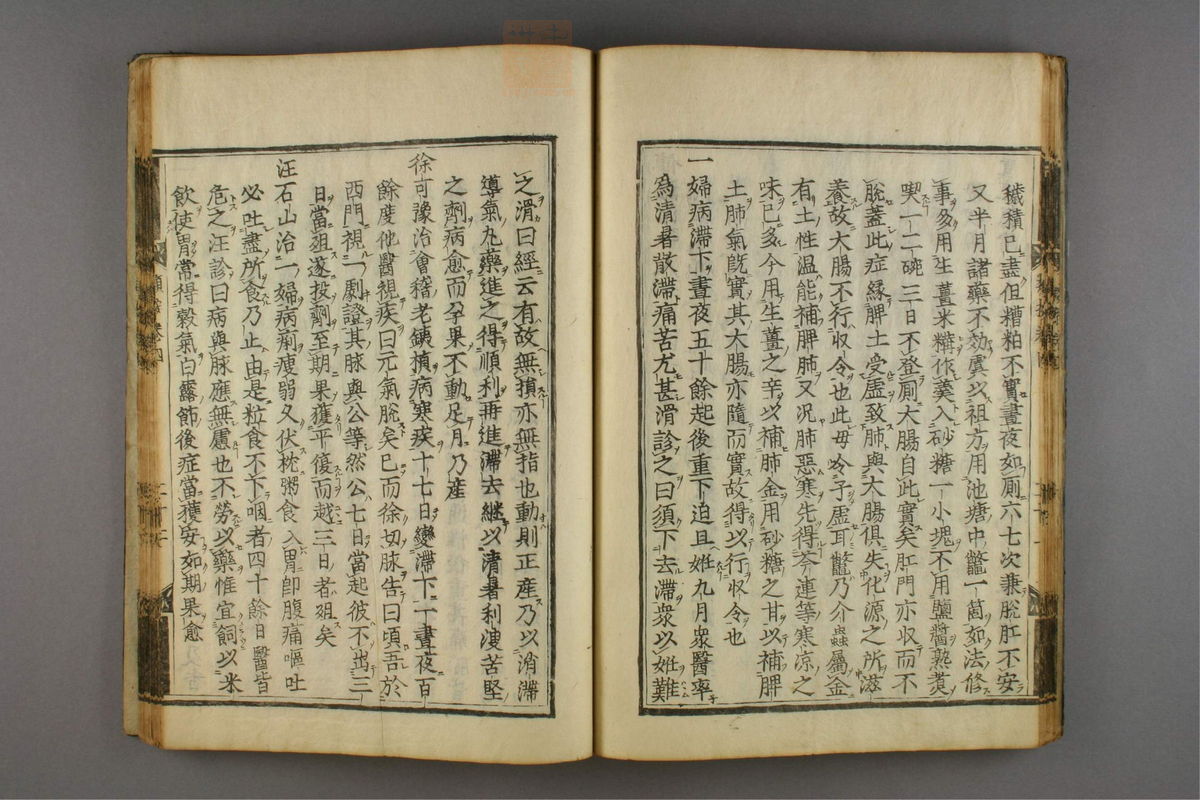 穢積已盡但糟粕不實晝夜如厠六七次兼脫肛不安
又半月諸藥不効虞以祖方用池塘中鼈一箇如法修
事多用生薑米糟作羹入砂糖一小塊不用鹽醬熟煑
喫一二碗三日不登厠大腸自此實矣肛門亦収而不
脫蓋此症緣脾土受虛致肺與大腸俱失化源之所滋
養故大腸不行収令也此母冷子虛耳鼈乃介蟲屬金
有土性温能補脾肺又況肺惡寒先得芩連等寒凉之
味已多今用生薑之辛以補肺金用砂糖之甘以補脾
土肺氣既實其大腸亦隨而實故得以行収令也
一婦病滯下晝夜五十餘起後重下迫且姙九月衆醫率
爲清暑散滯痛苦尤甚滑診之曰須下去滯衆以姙難
之滑曰經云有故無損亦無損也動則正產乃以消滯
導氣丸藥進之得順利再進滯去継以清暑利溲苦堅
之劑病愈而孕果不動足月乃產
徐可豫治會稽老銕楨病寒疾十七日變滯下一晝夜百
餘度他醫視疾曰元氣脫矣已而徐切脉告曰頃吾於
西門視一劇證其脉與公等然公七日當起彼不出三
日當殂遂投劑至期果獲平復而越三日者殂矣
汪石山治一婦病痢瘦弱久伏枕粥食入胃即腹痛嘔吐
必吐盡所食乃止由是粒食不下咽者四十餘日醫皆
危之汪診曰病與脉應無慮也不勞以藥惟宜飼以米
飲使胃常得穀氣白露節後症當獲安如期果愈